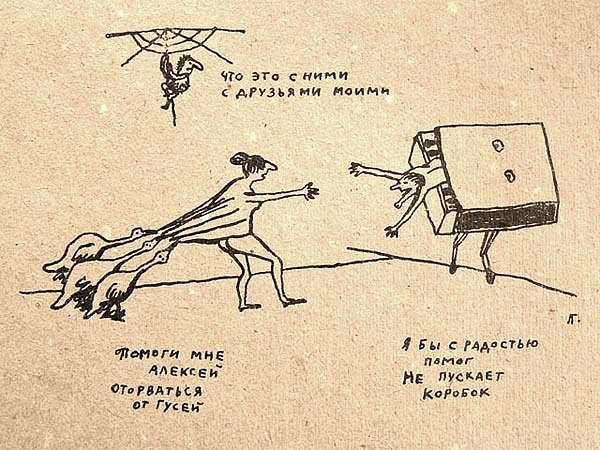 что это с ними
с друзьями моими
помоги мне
алексей
оторваться
от гусей
я бы с радостью
помог
не пускает
коробок